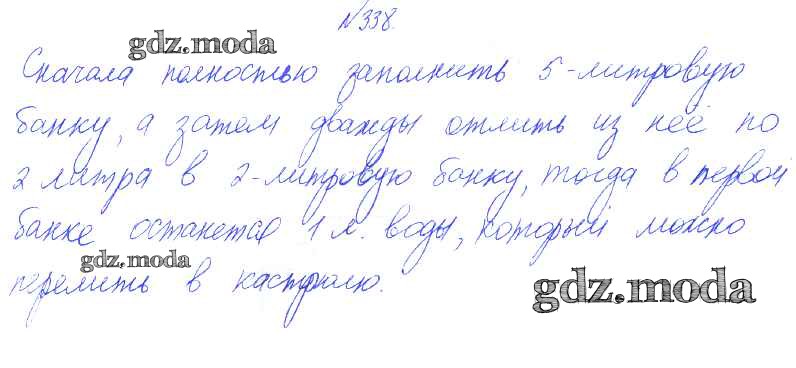 №338.
gdz.moda
Сначала полностью заполнить 5-литровую
банку, а затем дважды отлить из неё по
2 литра в 2-литровую банку, тогда в первой
банке останется 1 л. воды, который можно
gdz.moda
перелить в кастрюлю.
gdz.moda